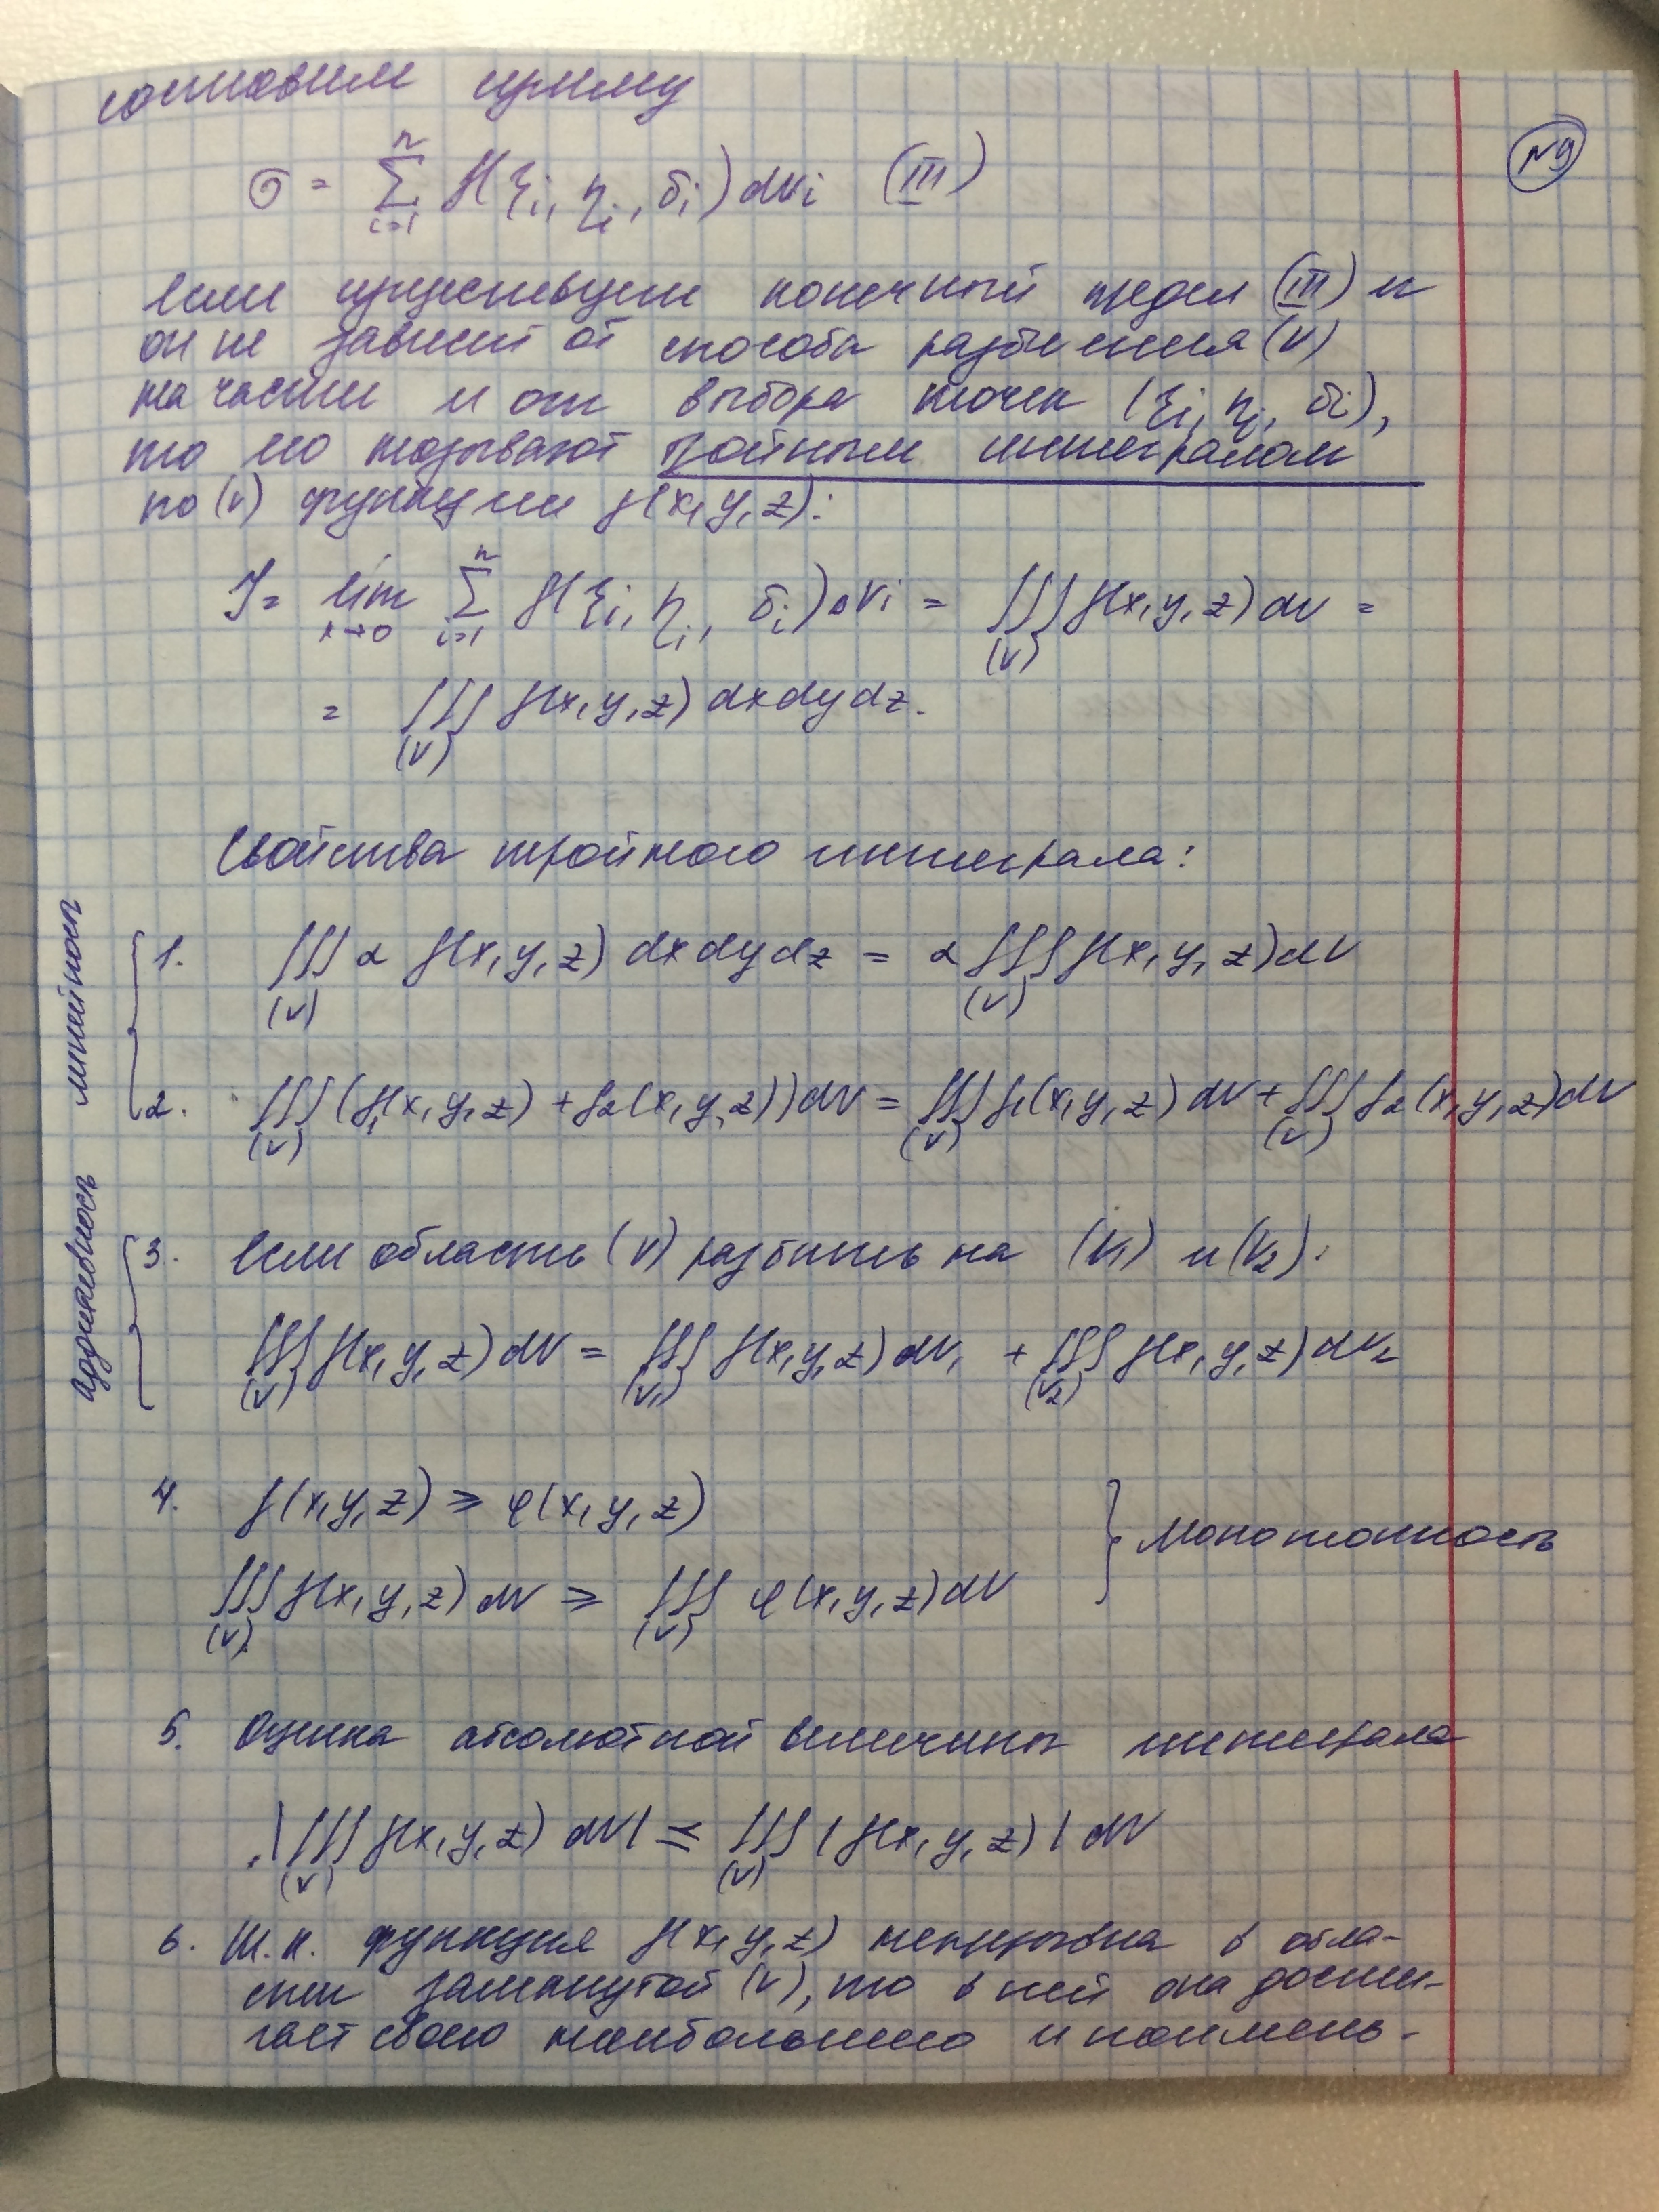 составим сумму
№9
σ = ∑_{i=1}^{n} f(ξi, ηi, δi) dvi (III)
Если существует конечный предел (III) и
он не зависит от способа разбиения (V)
на части и от выбора точек (ξi, ηi, δi),
то его называют тройным интегралом
по (V) функции f(x, y, z):
I = lim_{λ→0} ∑_{i=1}^{n} f(ξi, ηi, δi) ΔVi = ∭_{(V)} f(x, y, z) dV =
= ∭_{(V)} f(x, y, z) dx dy dz.
Свойства тройного интеграла:
линейность
1. ∭_{(V)} α f(x, y, z) dx dy dz = α ∭_{(V)} f(x, y, z) dV
2. ∭_{(V)} (f1(x, y, z) + f2(x, y, z)) dV = ∭_{(V)} f1(x, y, z) dV + ∭_{(V)} f2(x, y, z) dV
аддитивность
3. Если область (V) разбить на (V1) и (V2):
∭_{(V)} f(x, y, z) dV = ∭_{(V1)} f(x, y, z) dV1 + ∭_{(V2)} f(x, y, z) dV2
4. f(x, y, z) ⩾ φ(x, y, z)
∭_{(V)} f(x, y, z) dV ⩾ ∭_{(V)} φ(x, y, z) dV } монотонность
5. Оценка абсолютной величины интеграла
|∭_{(V)} f(x, y, z) dV| ⩽ ∭_{(V)} |f(x, y, z)| dV
6. Т.к. функция f(x, y, z) непрерывна в обла-
сти замкнутой (V), то в ней она дости-
гает своего наибольшего и наимень-